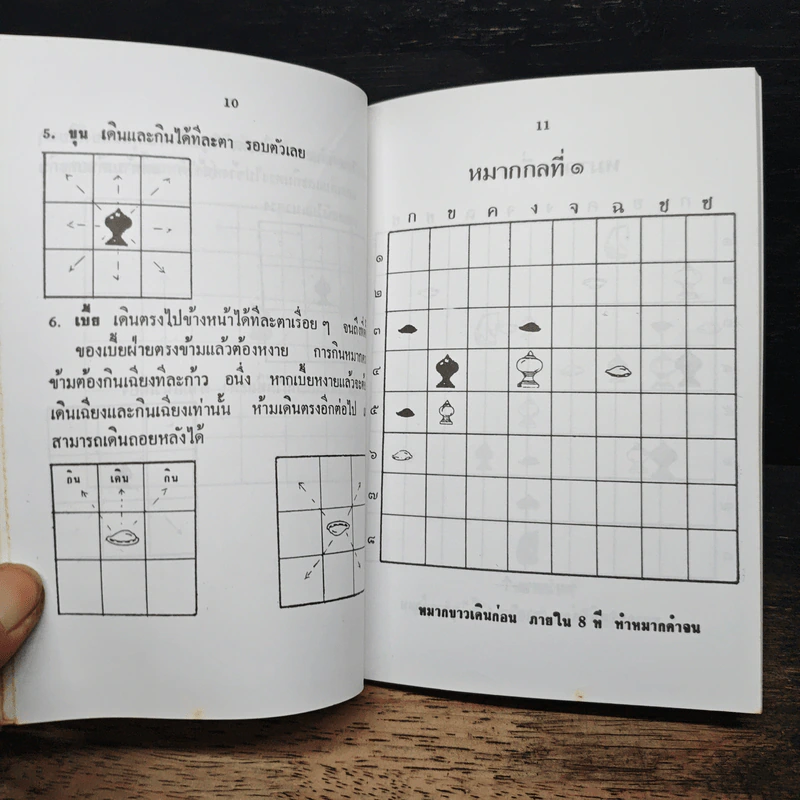 10
5. ขุน เดินและกินได้ทีละตา รอบตัวเลย
6. เบี้ย เดินตรงไปข้างหน้าได้ทีละตาเรื่อย ๆ จนถึง
ของเบี้ยฝ่ายตรงข้ามแล้วต้องหงาย การกินหมาก
ข้ามต้องกินเฉียงทีละก้าว อนึ่ง หากเบี้ยหงายแล้วจะ
เดินเฉียงและกินเฉียงเท่านั้น ห้ามเดินตรงอีกต่อไป
สามารถเดินถอยหลังได้
กิน เดิน กิน
11
หมากกลที่ ๑
ก ข ค ง จ ฉ ช ซ
๑
๒
๓
๔
๕
๖
๗
๘
หมากขาวเดินก่อน ภายใน 8 ที ทำหมากดำจน